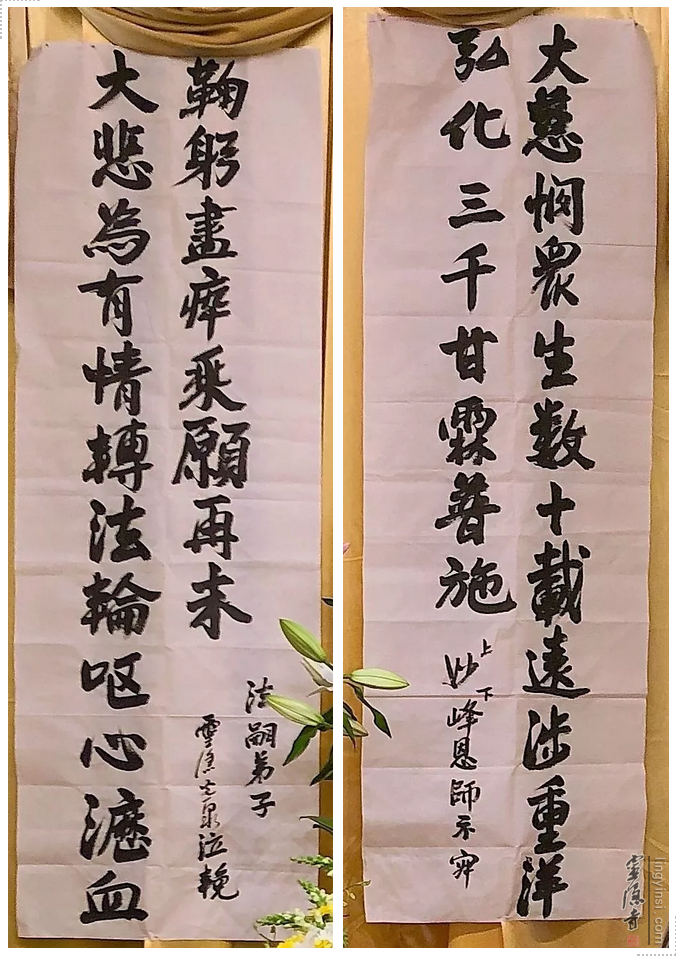 大慈憫眾生数十載遠涉重洋
弘化三千甘霖普施
上妙下峰恩師示寂
大悲為有情轉法輪呕心瀝血
鞠躬盡瘁乘願再来
法嗣弟子
靈隱光泉泣輓
靈隱寺
lingyinsi.com